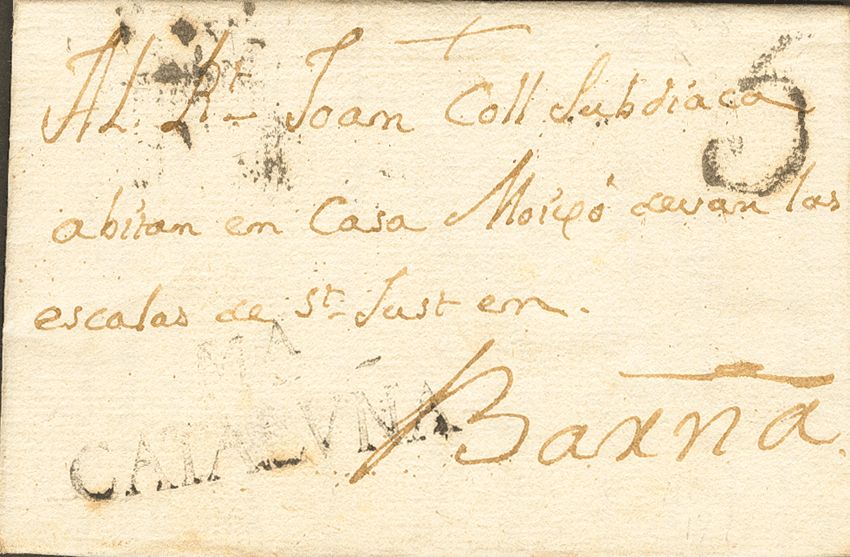 Al Rt. Joan Coll Subdiaca
5
abitan en Casa Moixó devan las
escalas de St. Just en.
MA
CATALUÑA
Barña.